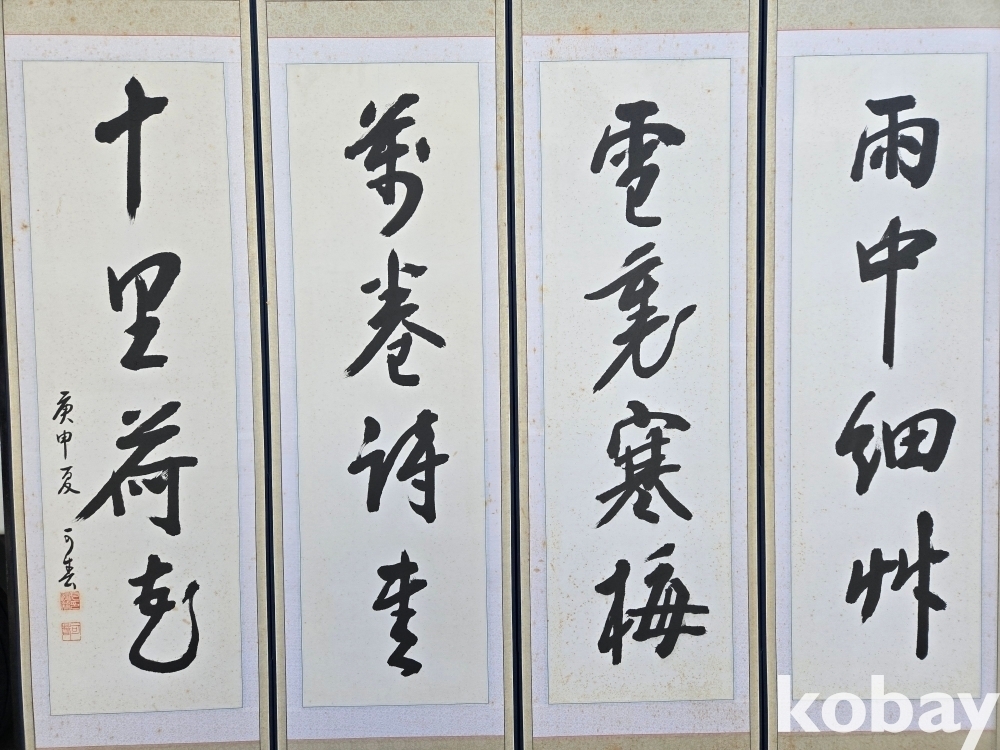 雨中細艸
雪裏寒梅
萬卷詩書
十里荷花
庚申夏 可
kobay